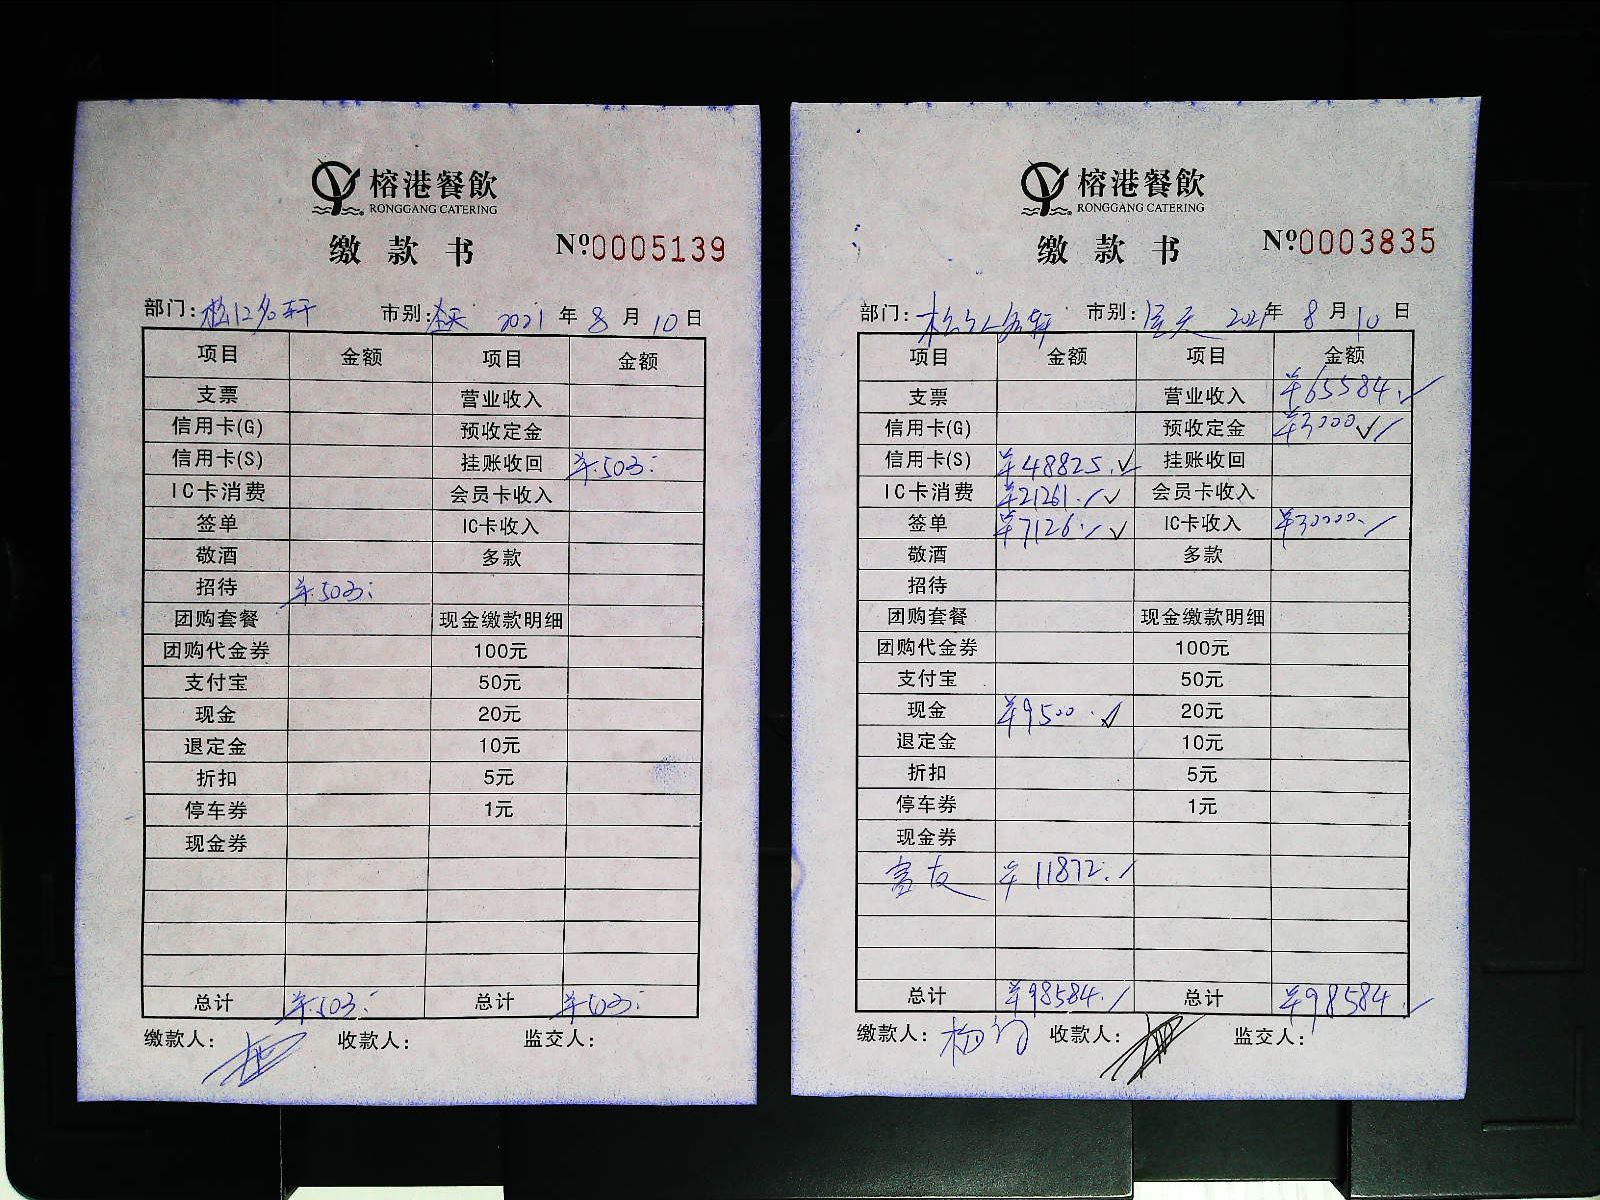 榕港餐飲
RONGGANG CATERING
缴款书
№0005139
部门:松江名轩 市别:全天 2021年8月10日
项目 金额 项目 金额
支票 营业收入
信用卡(G) 预收定金
信用卡(S) 挂账收回 ¥503.
IC卡消费 会员卡收入
签单 IC卡收入
敬酒 多款
招待 ¥503.
团购套餐 现金缴款明细
团购代金券 100元
支付宝 50元
现金 20元
退定金 10元
折扣 5元
停车券 1元
现金券
总计 ¥503. 总计 ¥503.
缴款人: 收款人: 监交人:
榕港餐飲
RONGGANG CATERING
缴款书
№0003835
部门:松江名轩 市别:全天 2021年8月10日
项目 金额 项目 金额
支票 营业收入 ¥65584.
信用卡(G) 预收定金 ¥3000
信用卡(S) ¥48825. 挂账收回
IC卡消费 ¥21261. 会员卡收入
签单 ¥7126. IC卡收入 ¥30000.
敬酒 多款
招待
团购套餐 现金缴款明细
团购代金券 100元
支付宝 50元
现金 ¥9500. 20元
退定金 10元
折扣 5元
停车券 1元
现金券
¥11872.
总计 ¥98584. 总计 ¥98584.
缴款人: 收款人: 监交人: